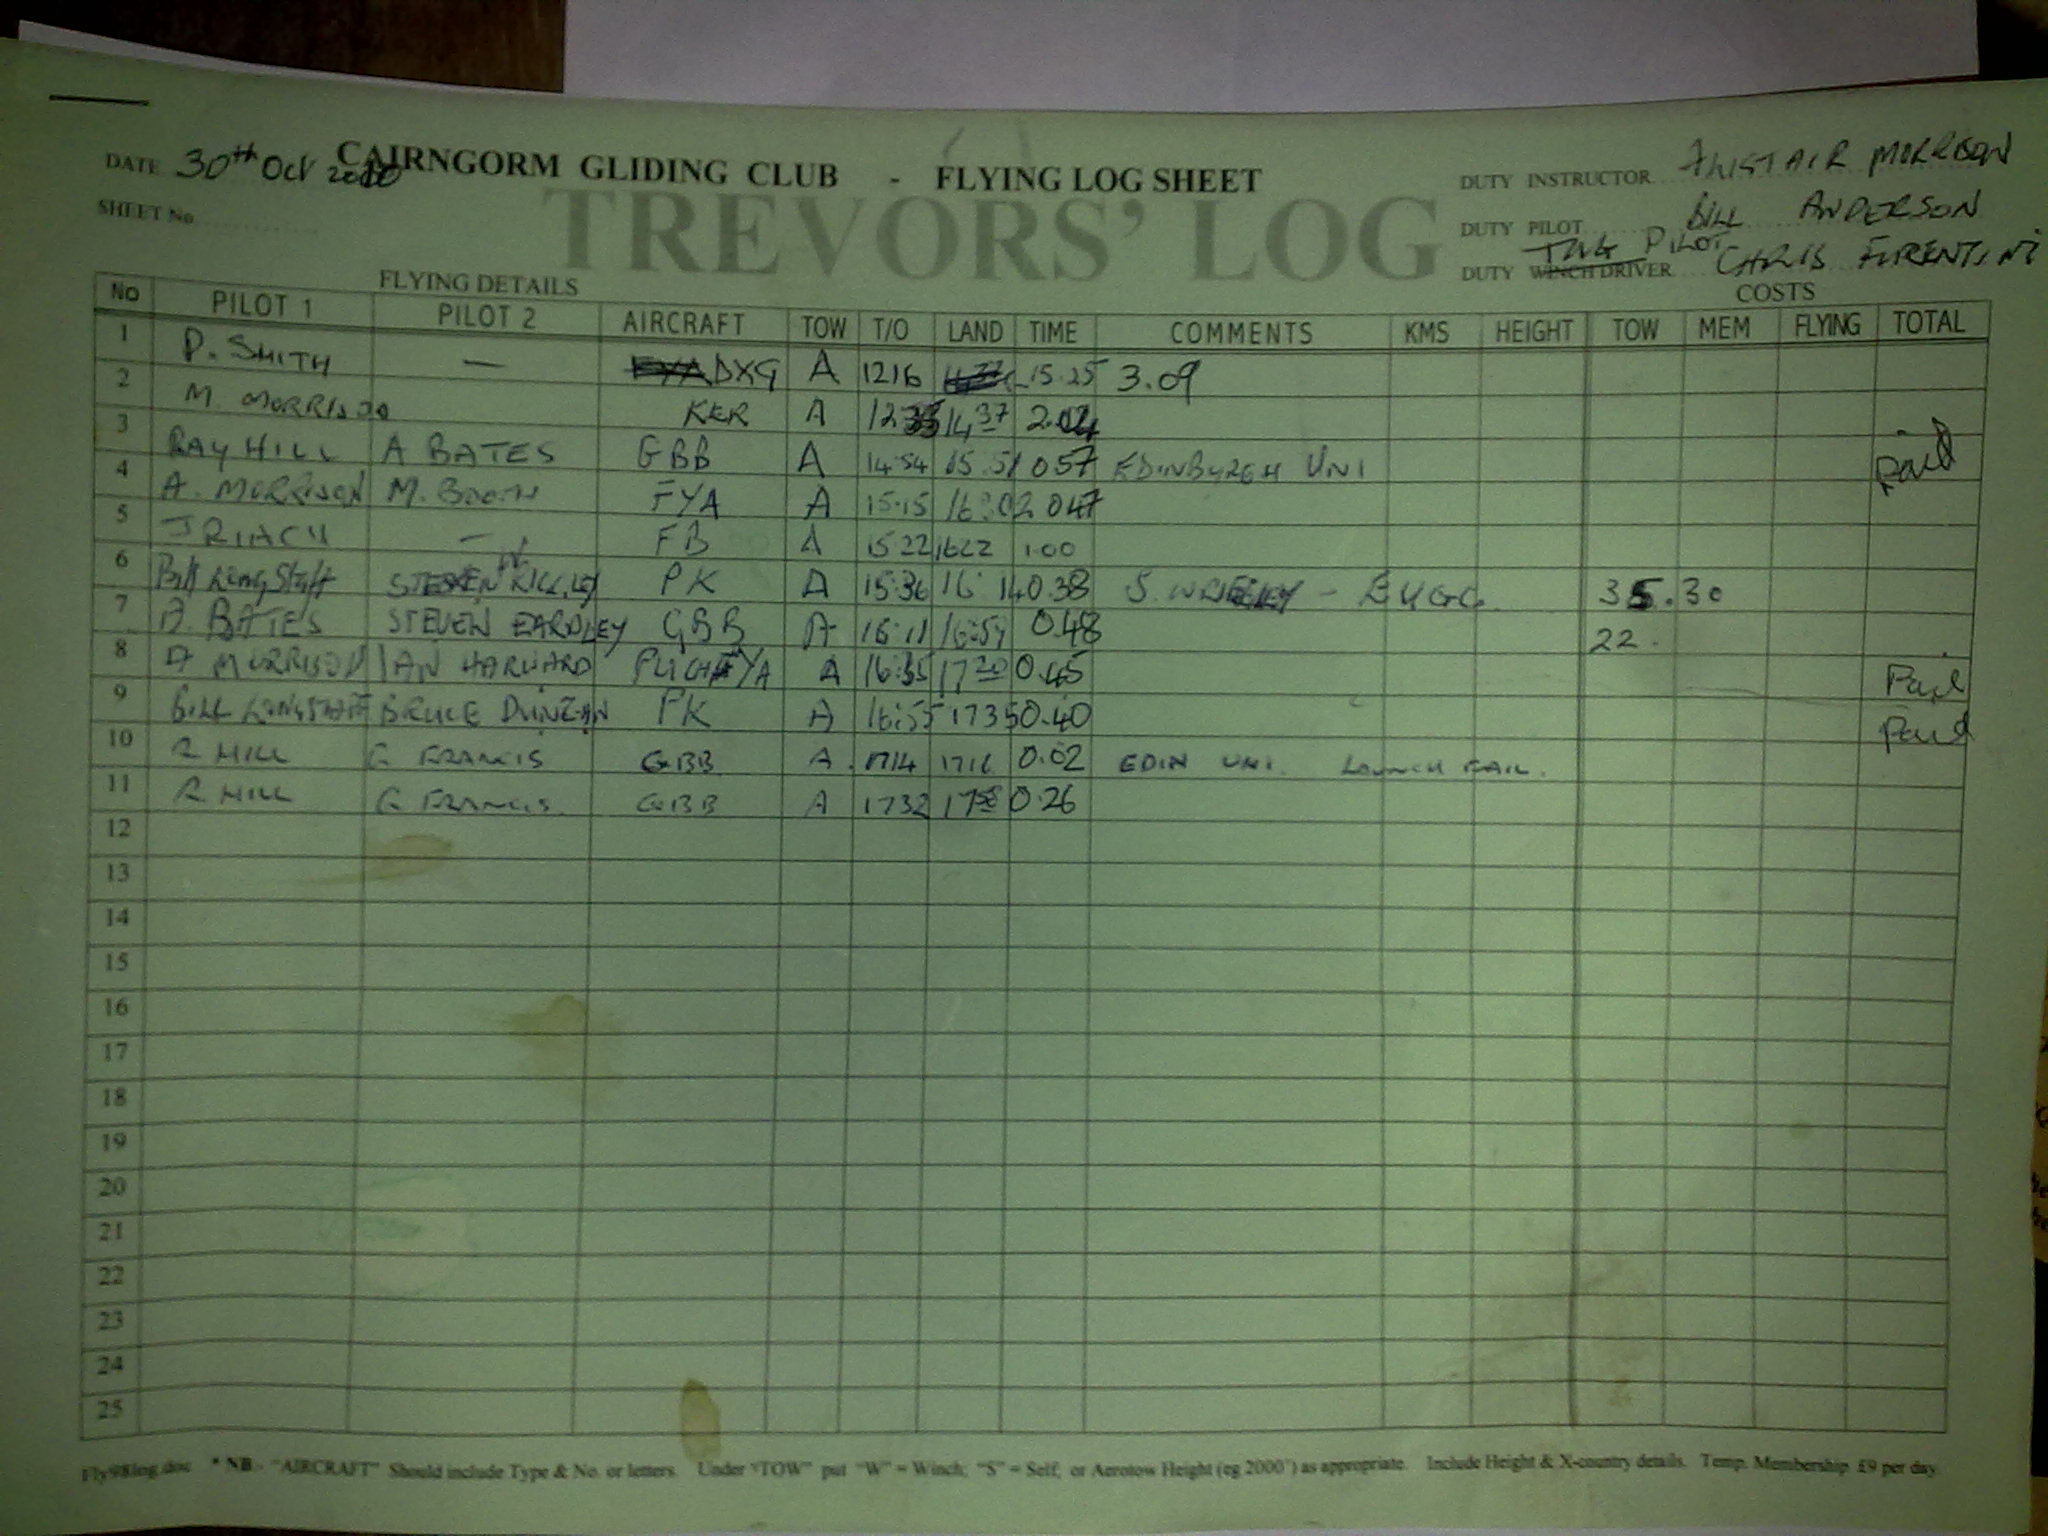 DATE 30th Oct 2010 CAIRNGORM GLIDING CLUB - FLYING LOG SHEET DUTY INSTRUCTOR ALISTAIR MORRISON
SHEET No TREVORS' LOG DUTY PILOT BILL ANDERSON
TUG PILOT
DUTY WINCH DRIVER CHRIS
FLYING DETAILS COSTS
No PILOT 1 PILOT 2 AIRCRAFT TOW T/O LAND TIME COMMENTS KMS HEIGHT TOW MEM FLYING TOTAL
1 P. SMITH — DXG A 1216 15.25 3.09
2 M. MORRISON KER A 1233 14 37 2.04
3 RAY HILL A BATES GBB A 14:54 15.51 0 57 EDINBURGH UNI Paid
4 A. MORRISON M. BOOTH FYA A 15:15 16:02 0 47
5 J RIACH — FB A 15 22 1622 1.00
6 Bill Longstaff STEVEN PK A 15:36 16:14 0.38 S. WRIGLEY - EUGC. 35.30
7 A. BATES STEVEN EARDLEY GBB A 16:11 16:59 0.48 22.
8 A MORRISON IAN HARWARD FYA A 16:35 17 20 0.45 Paid
9 BILL LONGSTAFF BRUCE DUNCAN PK A 16:55 1735 0.40 Paid
10 R HILL G FRANCIS GBB A 1714 1716 0.02 EDIN UNI. LAUNCH FAIL.
11 R. HILL G FRANCIS. GBB A 1732 1758 0.26
12
13
14
15
16
17
18
19
20
21
22
23
24
25
Fly98log.doc * NB - "AIRCRAFT" Should include Type & No. or letters. Under "TOW" put "W" = Winch; "S" = Self; or Aerotow Height (eg 2000') as appropriate. Include Height & X-country details. Temp. Membership £9 per day